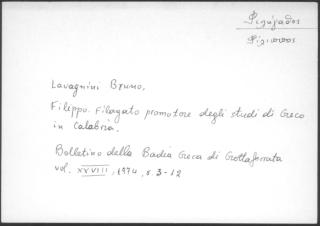 Φιλάγαθος
Φίλιππος
Lavagnini Bruno,
Filippo Filagato promotore degli studi di Greco
in Calabria.
Bolletino della Badia Greca di Grottaferrata
vol. XXVIII, 1974, σ. 3-12